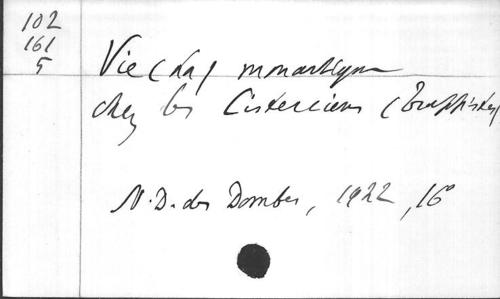 102
161
5
Vie (La) monastique
chez les Cisterciens (Trappistes)
N.D. des Dombes, 1922, 16°